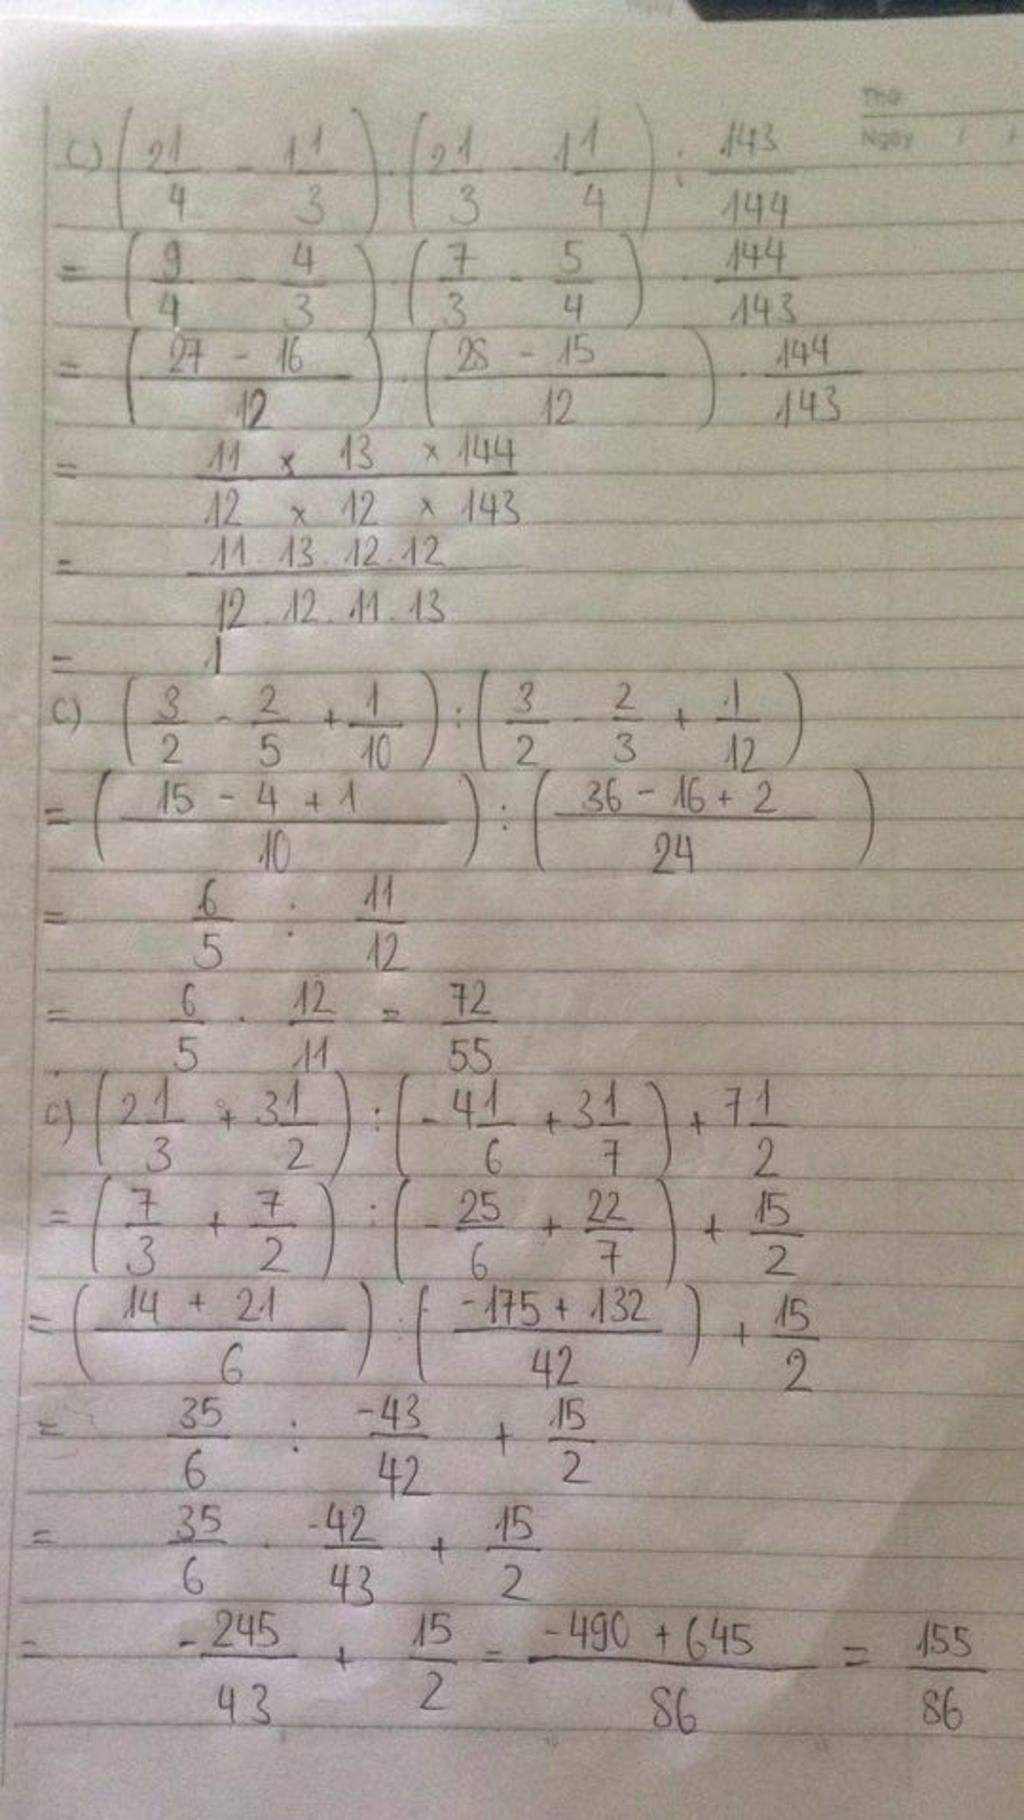 Thứ
Ngày / /
c) (2 1/4 - 1 1/3) . (2 1/3 - 1 1/4) : 143/144
= (9/4 - 4/3) . (7/3 - 5/4) . 144/143
= ((27 - 16)/12) . ((28 - 15)/12) . 144/143
= (11 × 13 × 144)/(12 × 12 × 143)
= (11 . 13 . 12 . 12)/(12 . 12 . 11 . 13)
= 1
c) (3/2 - 2/5 + 1/10) : (3/2 - 2/3 + 1/12)
= ((15 - 4 + 1)/10) : ((36 - 16 + 2)/24)
= 6/5 : 11/12
= 6/5 . 12/11 = 72/55
c) (2 1/3 + 3 1/2) : (- 4 1/6 + 3 1/7) + 7 1/2
= (7/3 + 7/2) : (- 25/6 + 22/7) + 15/2
= ((14 + 21)/6) : ((-175 + 132)/42) + 15/2
= 35/6 : -43/42 + 15/2
= 35/6 . -42/43 + 15/2
= -245/43 + 15/2 = (-490 + 645)/86 = 155/86